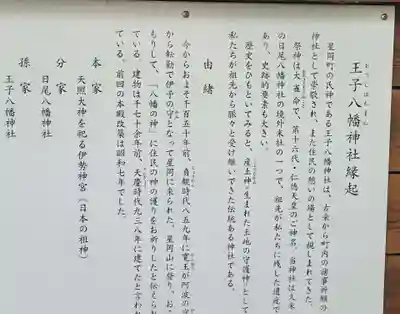 おうじはちまん
王子八幡神社縁起
星岡町の氏神である王子八幡神社は、古来から町内の諸事祈願の
神社として崇敬され、また住民の憩いの場として親しまれてきた。
祭神は大雀命で、第十六代、仁徳天皇のご神名。当神社は久米
の日尾八幡神社の境外末社の一つで、祖先が私たちに残した遺産で
あり、史跡的要素も大きい。
歴史をひもといてみると、産土神(生まれた土地の守護神)として
私たちが祖先から脈々と受け継いできた伝統ある神社である。
由緒
今からおよそ千百五十年前、貞観時代八五九年に寛王が阿波の守
から転勤で伊予の守となって星岡に来られた。星岡山に登り、お
もりして、「八幡の神」に住民の神の護りをお祈りしたと伝えら
ている。建物は千七十余年前、天慶時代九三八年に建てたと言われ
ている。前回の本殿改築は昭和七年でした。
本家
天照大神を祀る伊勢神宮(日本の祖神)
分家
日尾八幡神社
孫家
王子八幡神社